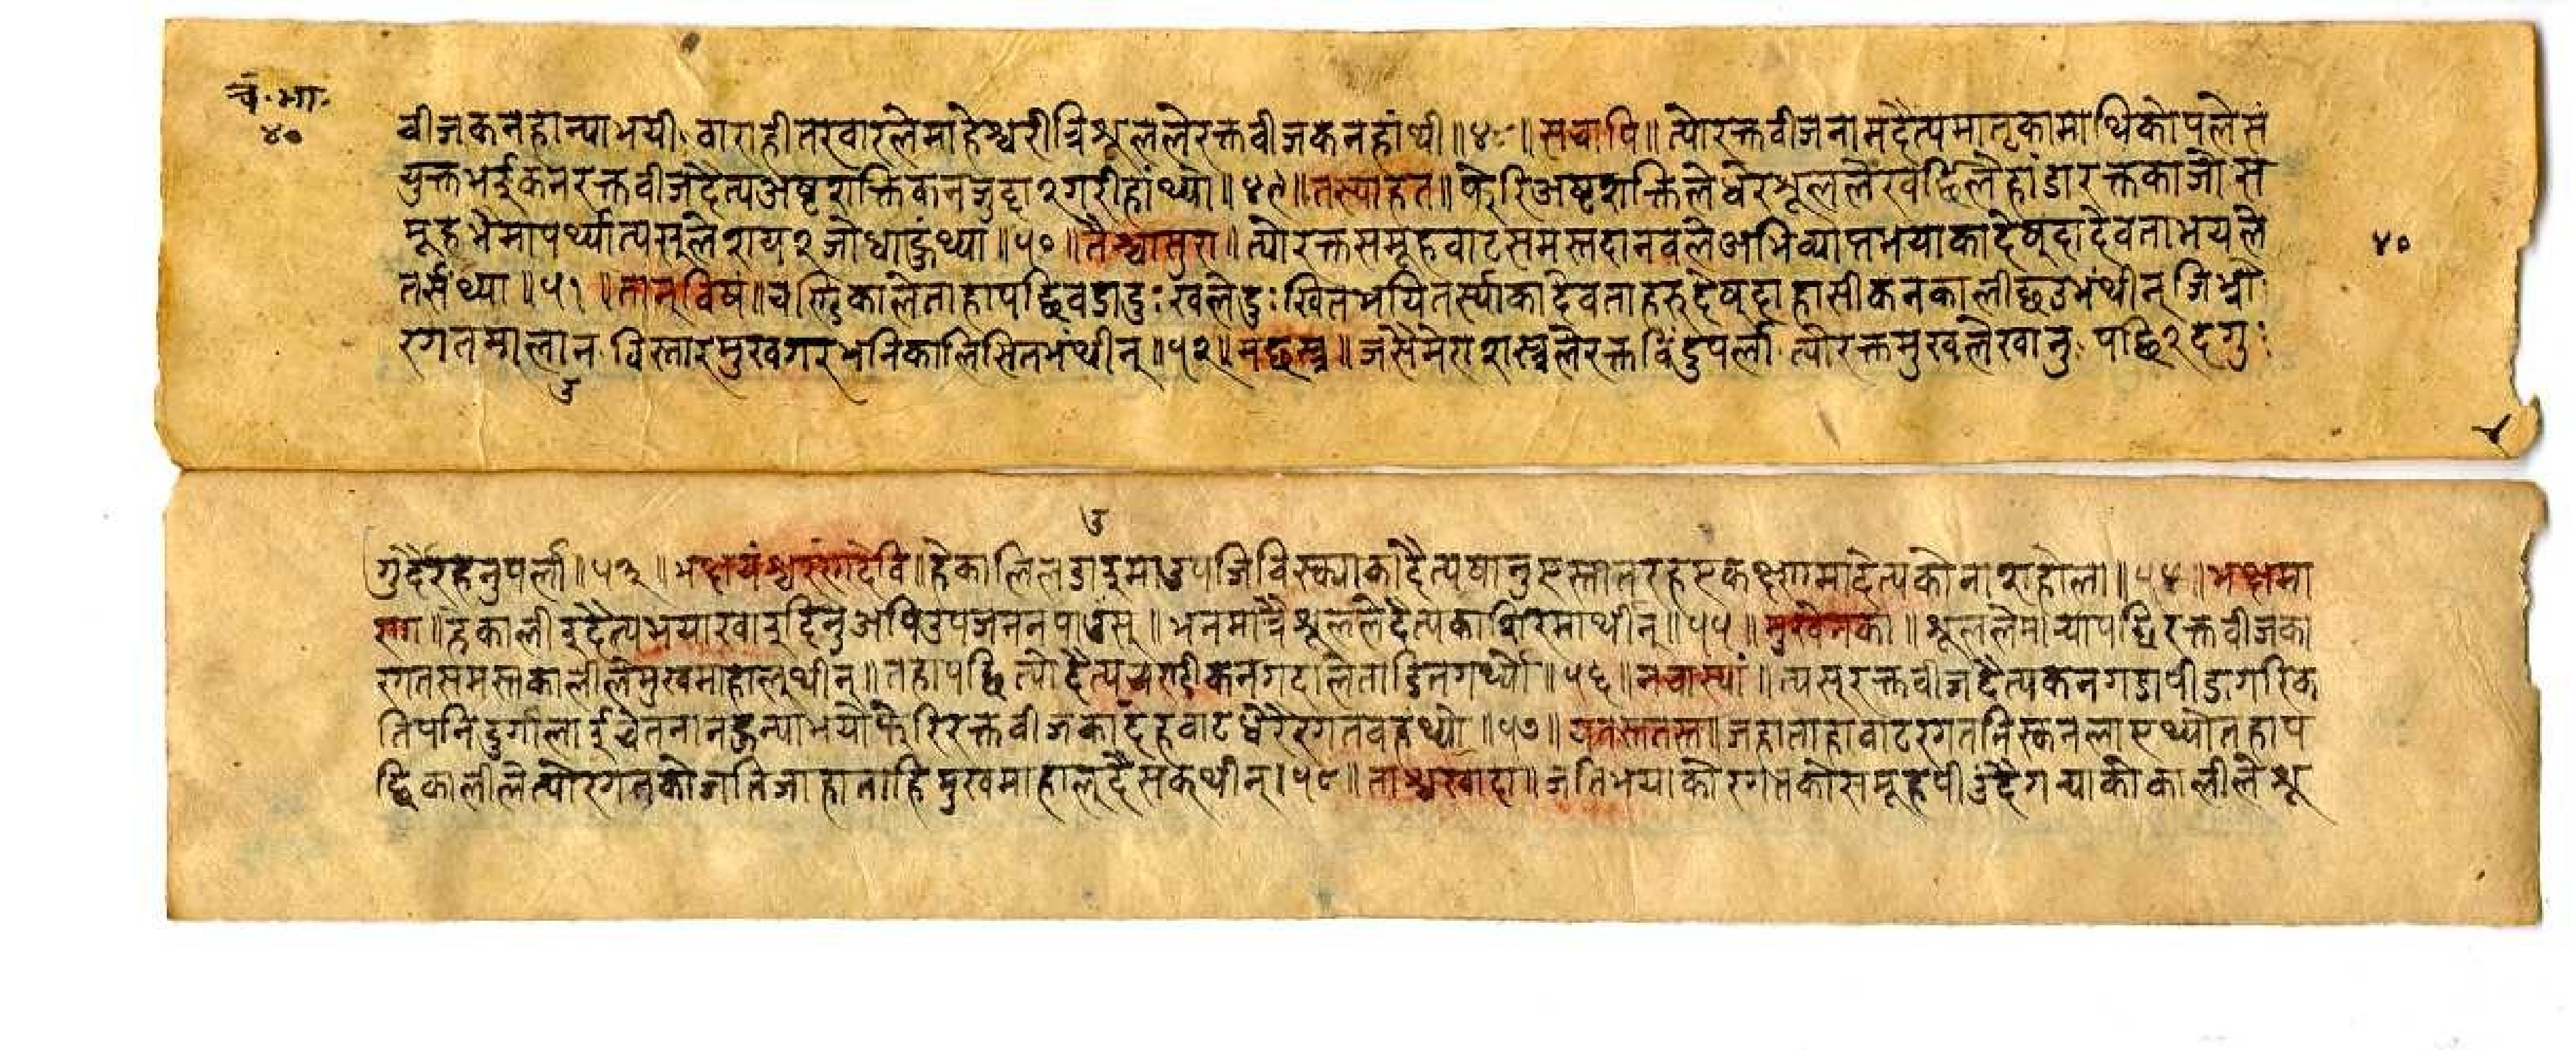 चं.भा.
४०
वीजकनहान्याभयी वाराहीतरवारलेमाहेश्वरीत्रिशूललेरक्तवीजकनहांथी॥४८॥सचापि॥त्योरक्तवीजनामदैत्यमातृकामाथिकोपलेसं
युक्तभईकनरक्तवीजदैत्यअष्टशक्तिकनजुदा२गरीहांथ्या॥४९॥तस्याहत॥फेरिअष्टशक्तिलेधेरशूललेखड्गिलेहांडारक्तकाजोस
मूहभैमापर्थ्यात्यसुलेशय२जोधाहुंथ्या॥५०॥तैश्चासुरा॥त्योरक्तसमूहवाटसमस्तदानवलेअभिव्याप्तभयाकादेषुदादेवताभयले
४०
तर्संथ्या॥५१॥तान्विषं॥चण्डिकालेताहापछिवडादुःखलेदुःखितभयितर्स्याकादेवताहरुदेषुदाहासीकनकालीछेउभंथीन्जिभ्रो
रगतमालान विस्तारमुखगरभनिकालिसितभंथीन्॥५२॥मछस्त्र॥जसैमेराशस्त्रलेरक्तविंदुपर्ला त्योरक्तमुखलेखानु पछि२दगु
उ
उ
गुर्दैरहनुपर्ला॥५३॥भक्षयंश्चरणेदेवि॥हेकालिलडाइमाउपजिविस्क्याकोदैत्यषानुएस्तातरहएकक्षणमादैत्यकोनाशहोला॥५४॥भक्षमा
णा॥हेकालीइदैत्यभयाखाइदिनुअघिउपजननपाउंसु॥भनमात्रैशूललेदैत्यकाशिरमाथीन्॥५५॥मुखेनका॥शूललेमान्यापछिरक्तवीजका
रगतसमस्तकालीलेमुखमाहाल्थीन्॥तहापछित्योदैत्यचण्डीकनगदालेताडिनगर्थ्यो॥५६॥नचास्यां॥त्यसुरक्तवीजदैत्यकनगडापीडागरिक
तिपनिदुर्गालाईचेतनानहुन्याभयोफेरिरक्तवीजकादेहवाटधेरैरगतवहंथ्यो॥५७॥यतस्ततस्त॥जहाताहावाटरगतनिस्कनलाएथ्योतहाप
छिकालीलेत्योरगतकोजतिजाहाताहिमुखमाहाल्दैसक्थीन्।५८॥ताश्चखादा॥जतिभयाकोरगतकोसमूहपीउंदैगन्याकोकालीलेशू